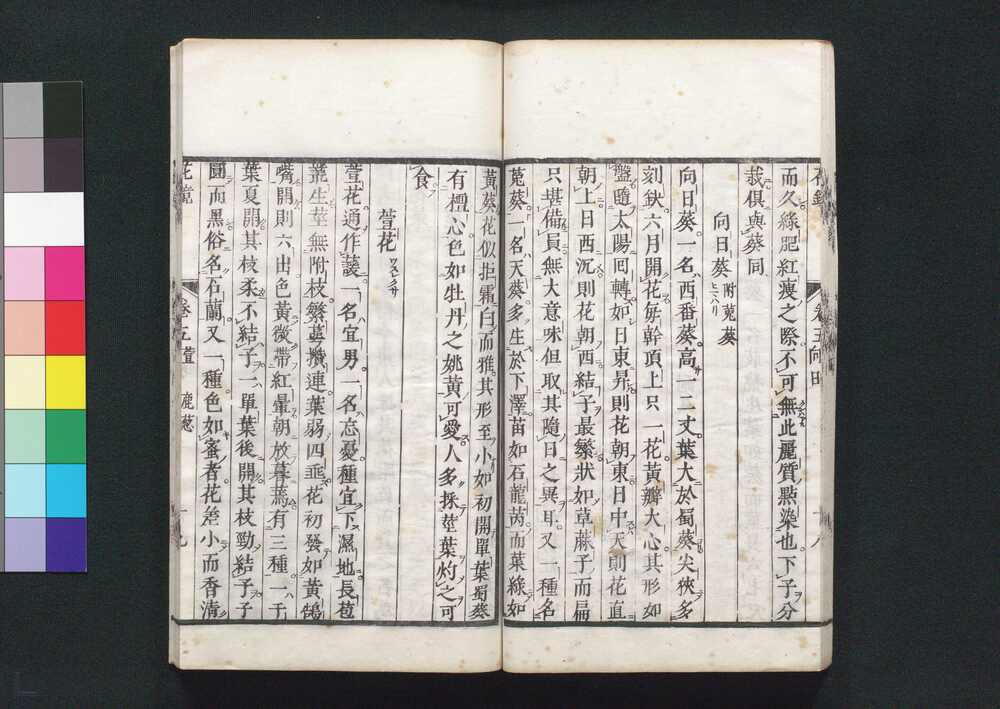 而久綠肥紅瘦之際不可無此麗質㸃染也下子分
栽俱與葵同
向日葵 附兎葵 ヒマハリ
向日葵一名西番葵高一二丈葉大於蜀葵尖狹多
刻缺六月開花每幹頂上只一花黃瓣大心其形如
盤隨太陽囘轉如日東昇則花朝東日中天則花直
朝上日西沉則花朝西結子最繁狀如草蔴子而扁
只堪備員無大意味但取其隨日之異耳又一種名
兎葵一名天葵多生於下澤苗如石龍芮而葉綠如
黃葵花似拒霜白而雅其形至小如初開單葉蜀葵
有檀心色如牡丹之姚黃可愛人多採莖葉灼之可
食
萱花 ワスレクサ
萱花通作蘐一名宜男一名忘憂種宜下濕地長苞
叢生莖無附枝繁萼攢連葉弱四垂花初發如黃鵠
嘴開則六出色黃微帶紅暈朝放暮蔫有三種一千
葉夏開其枝柔不結子一單葉後開其枝勁結子子
圓而黑俗名石蘭又一種色如蜜者花差小而香清
卷五萱 鹿葱
十九
卷五向日
十八